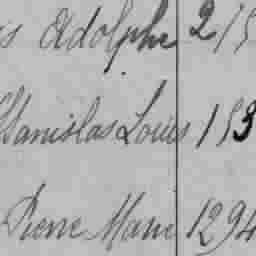 Adolphe 215
Stanislas Louis 153
Pierre Marie 1294